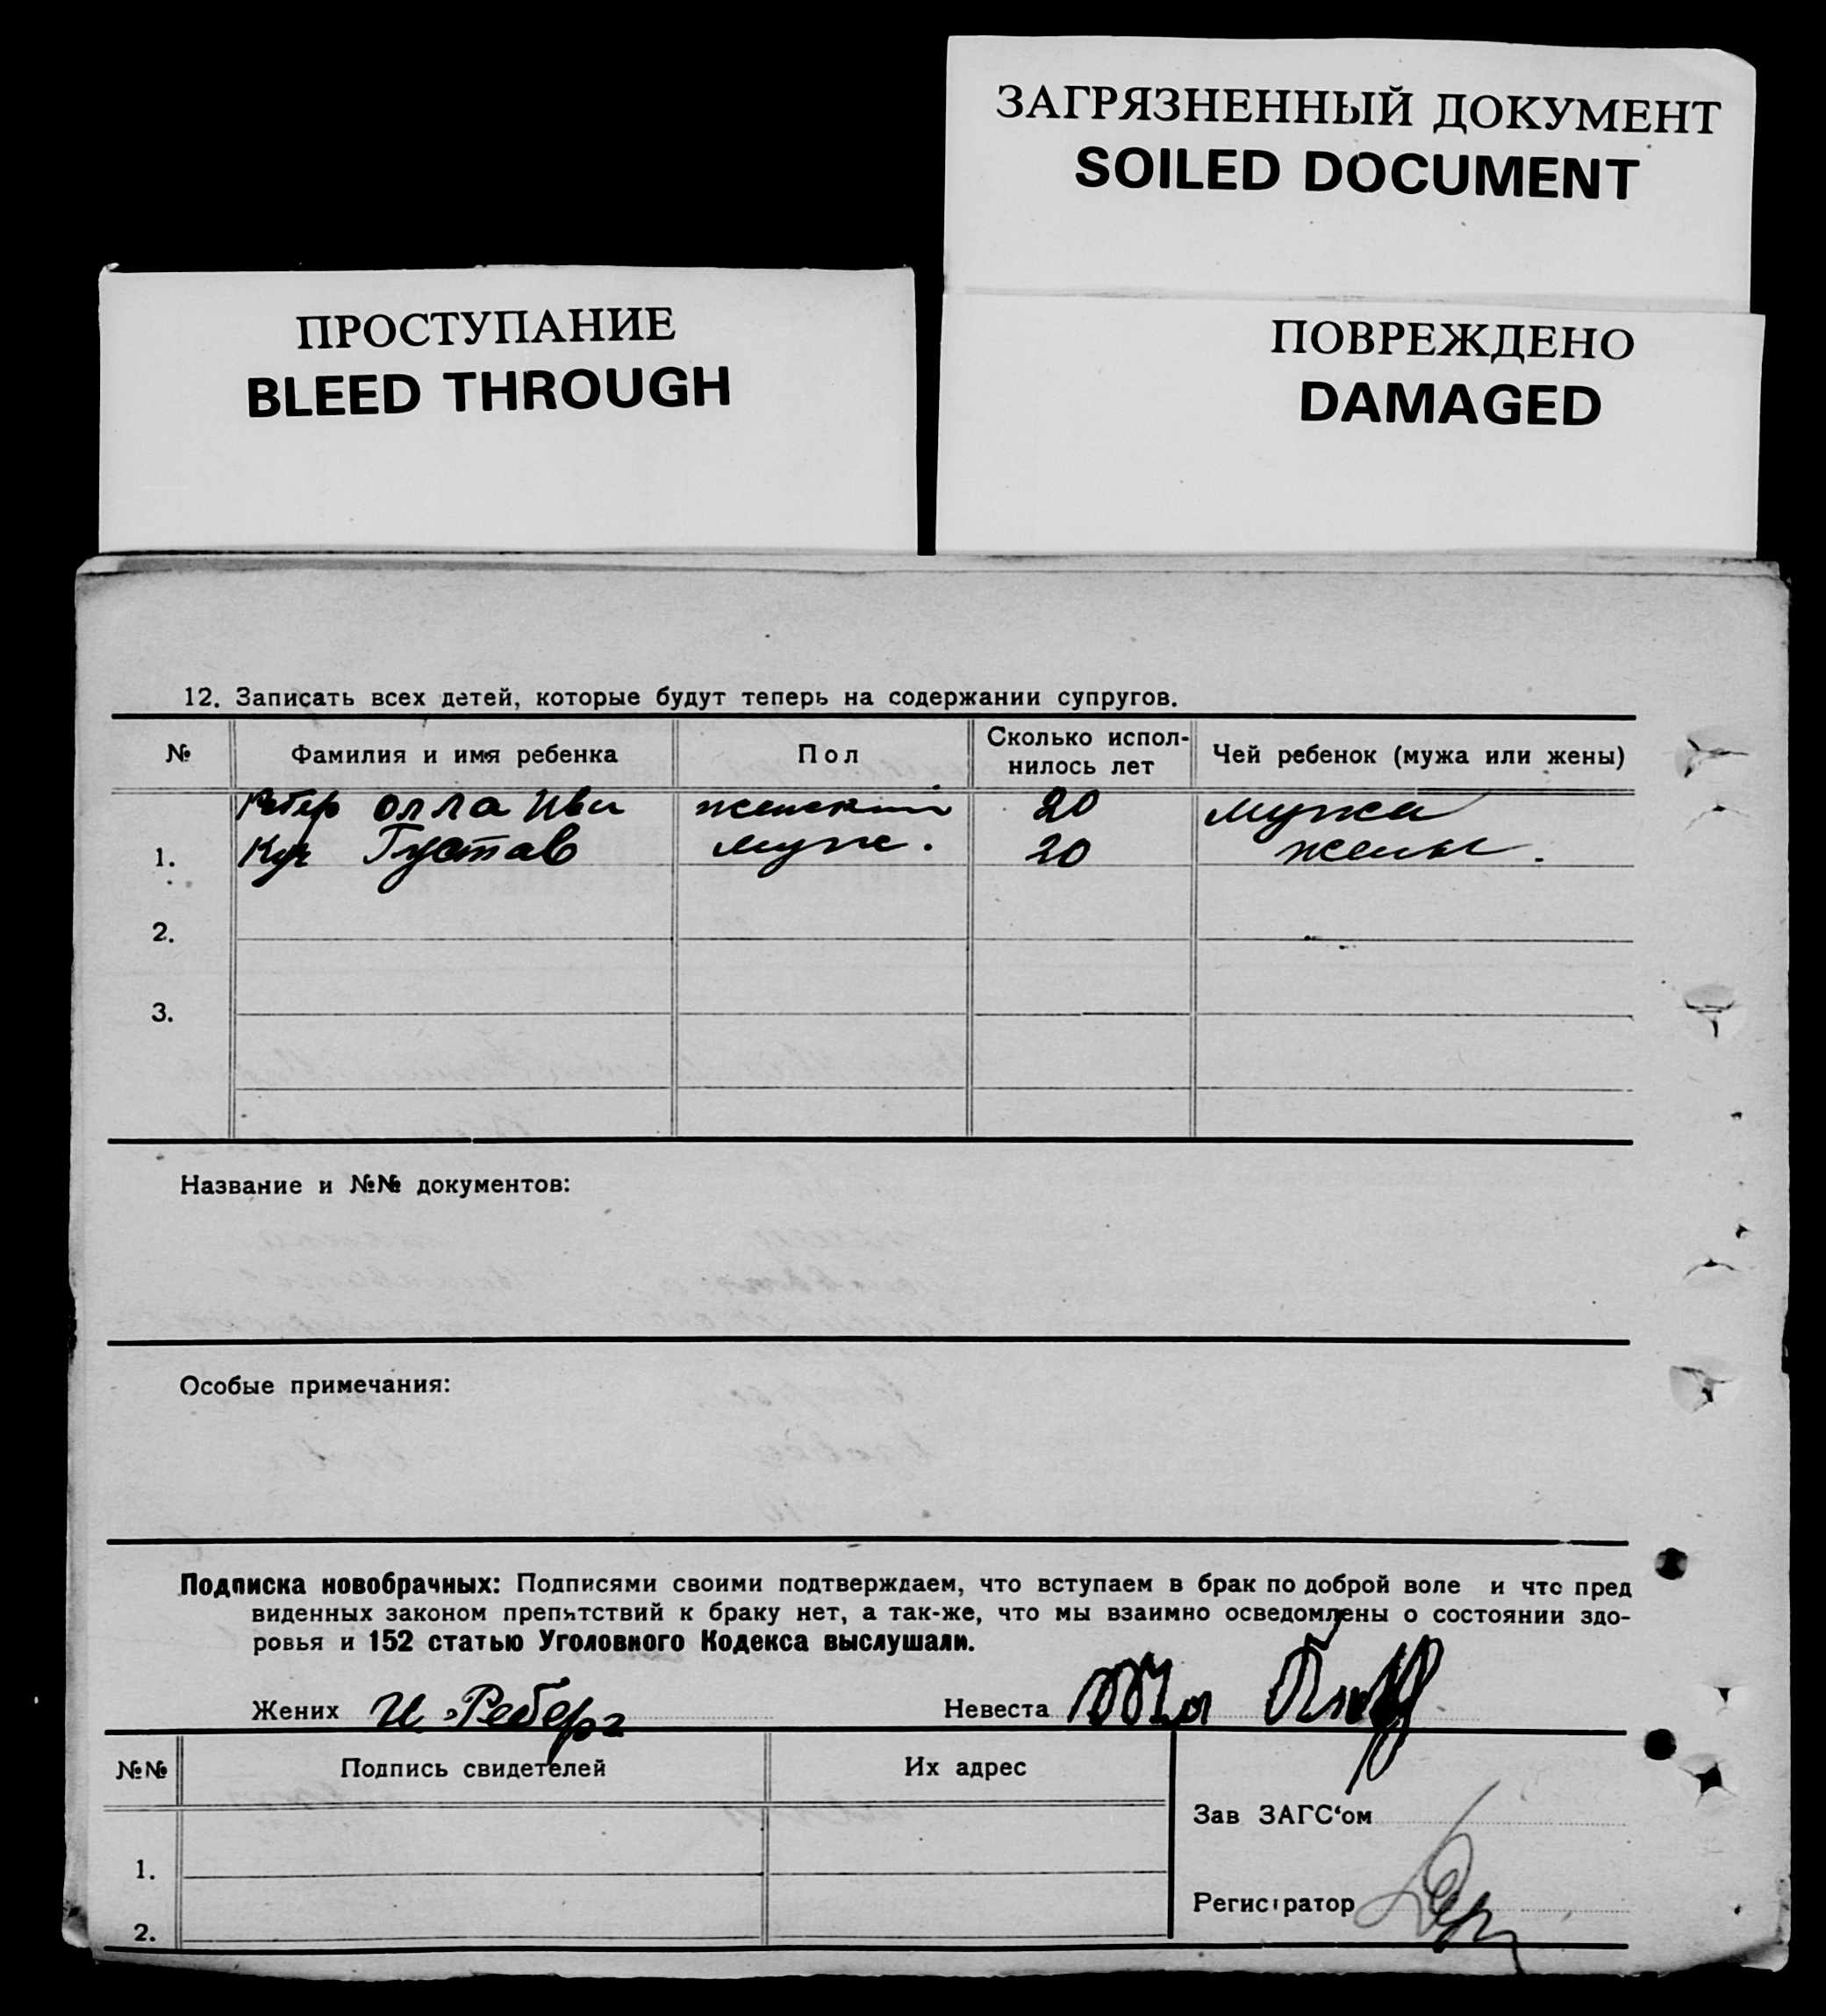 ЗАГРЯЗНЕННЫЙ ДОКУМЕНТ
SOILED DOCUMENT
ПРОСТУПАНИЕ
BLEED THROUGH
ПОВРЕЖДЕНО
DAMAGED
12. Записать всех детей, которые будут теперь на содержании супругов.
№ Фамилия и имя ребенка Пол Сколько испол-нилось лет Чей ребенок (мужа или жены)
олла женский 20 мужа
1. Кух Густав муж. 20 жены.
2.
3.
Название и №№ документов:
Особые примечания:
Подписка новобрачных: Подписями своими подтверждаем, что вступаем в брак по доброй воле и что пред
виденных законом препятствий к браку нет, а так-же, что мы взаимно осведомлены о состоянии здо-
ровья и 152 статью Уголовного Кодекса выслушали.
Жених И. Реберг Невеста
№№ Подпись свидетелей Их адрес
Зав ЗАГС‘ом
1.
Регистратор
2.